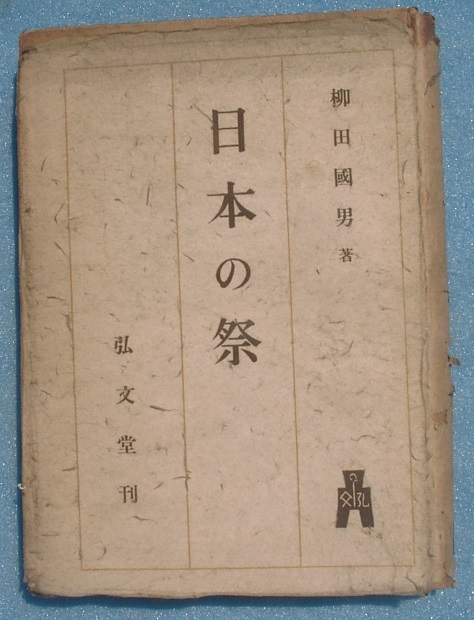 柳田國男著
日本の祭
弘文堂刊